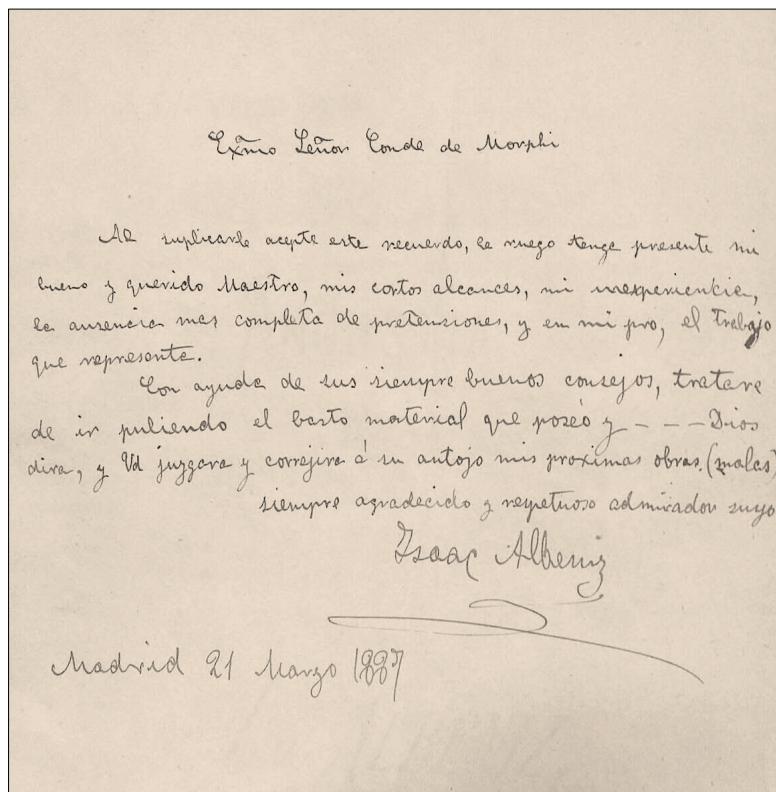 Exmo Señor Conde de Morphi
Al suplicarle acepte este recuerdo, le ruego tenga presente mi
bueno y querido Maestro, mis cortos alcances, mi inexperiencia,
la ausencia mas completa de pretensiones, y en mi pro, el trabajo
que representa.
Con ayuda de sus siempre buenos consejos, tratare
de ir puliendo el basto material que poseo y - - - Dios
dira, y Vd juzgara y correjira á su antojo mis proximas obras (malas)
siempre agradecido y respetuoso admirador suyo
Isaac Albeniz
Madrid 21 Marzo 1887